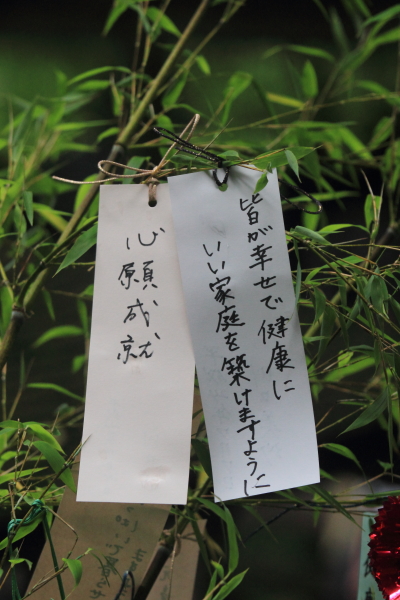 皆が幸せで健康に
いい家庭を築けますように
心願成就